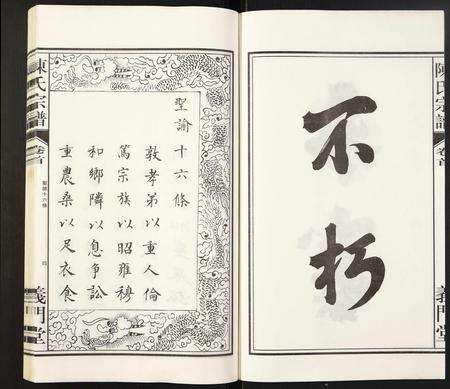 陳氏宗譜
卷首
義門堂
不朽
聖諭十六條
敦孝弟以重人倫
篤宗族以昭雍穆
和鄉隣以息爭訟
重農桑以足衣食
陳氏宗譜
卷首
聖諭十六條
四
義門堂